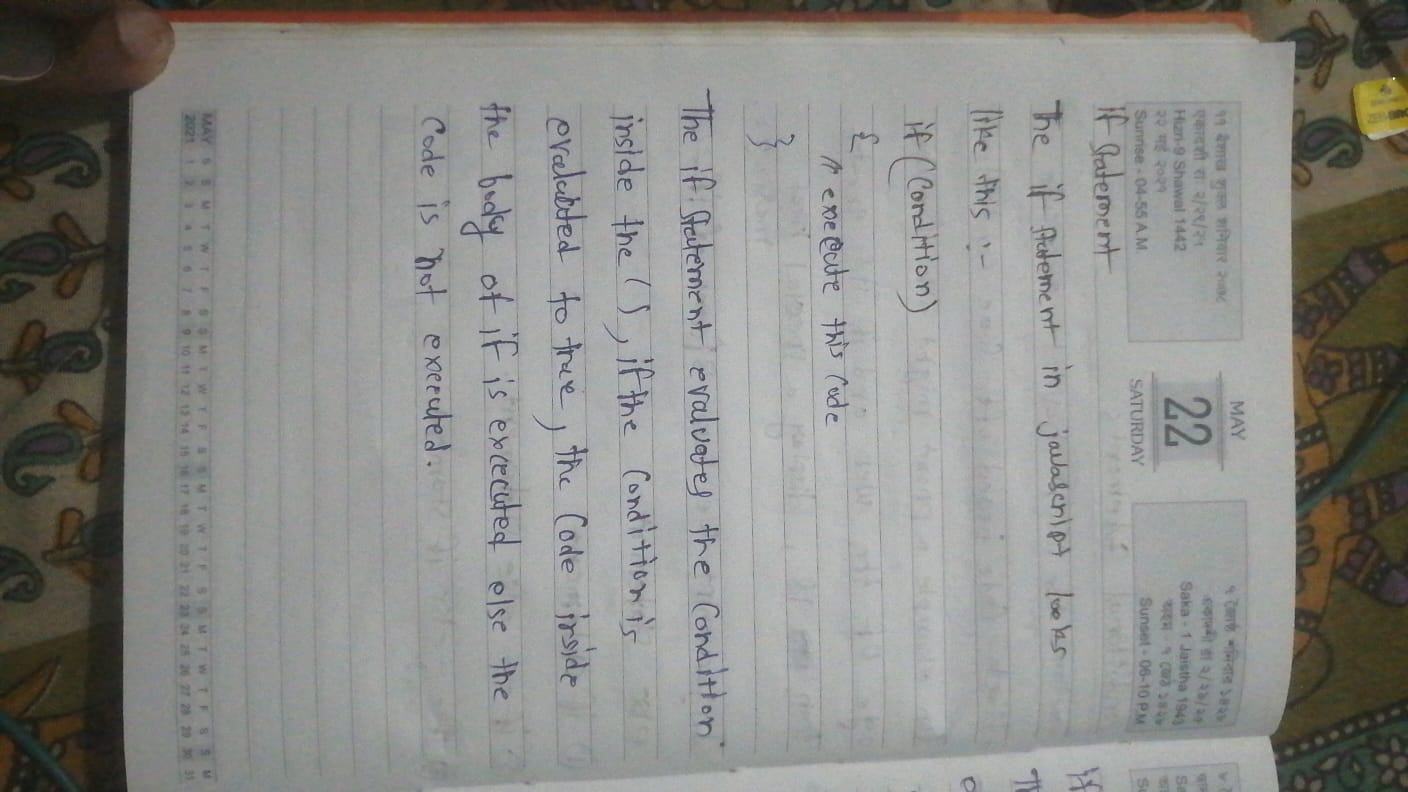 Hizri-9 Shawal 1442
Sunrise - 04-55 A.M.
MAY
22
SATURDAY
Saka - 1 Jaistha 1943
Sunset - 06-10 P.M.
If statement
The if statement in javascript looks
like this :-
if (Condition)
{
execute this Code
}
The if statement evaluates the Condition
inside the (), if the Condition is
evaluated to true, the Code inside
the body of if is excecuted else the
Code is not executed.
MAY S S M T W T F S S M T W T F S S M T W T F S S M T W T F S S M
2021 1 2 3 4 5 6 7 8 9 10 11 12 13 14 15 16 17 18 19 20 21 22 23 24 25 26 27 28 29 30 31
If